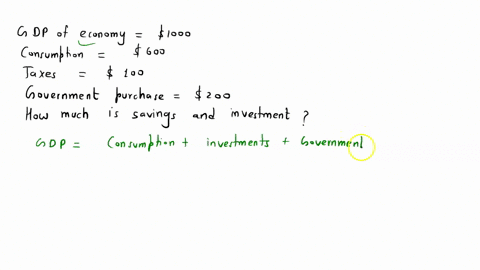 GDP of economy = $1000
Consumption = $600
Taxes = $ 100
Government purchase = $200
How much is savings and investment ?
GDP = Consumption + investments + Government